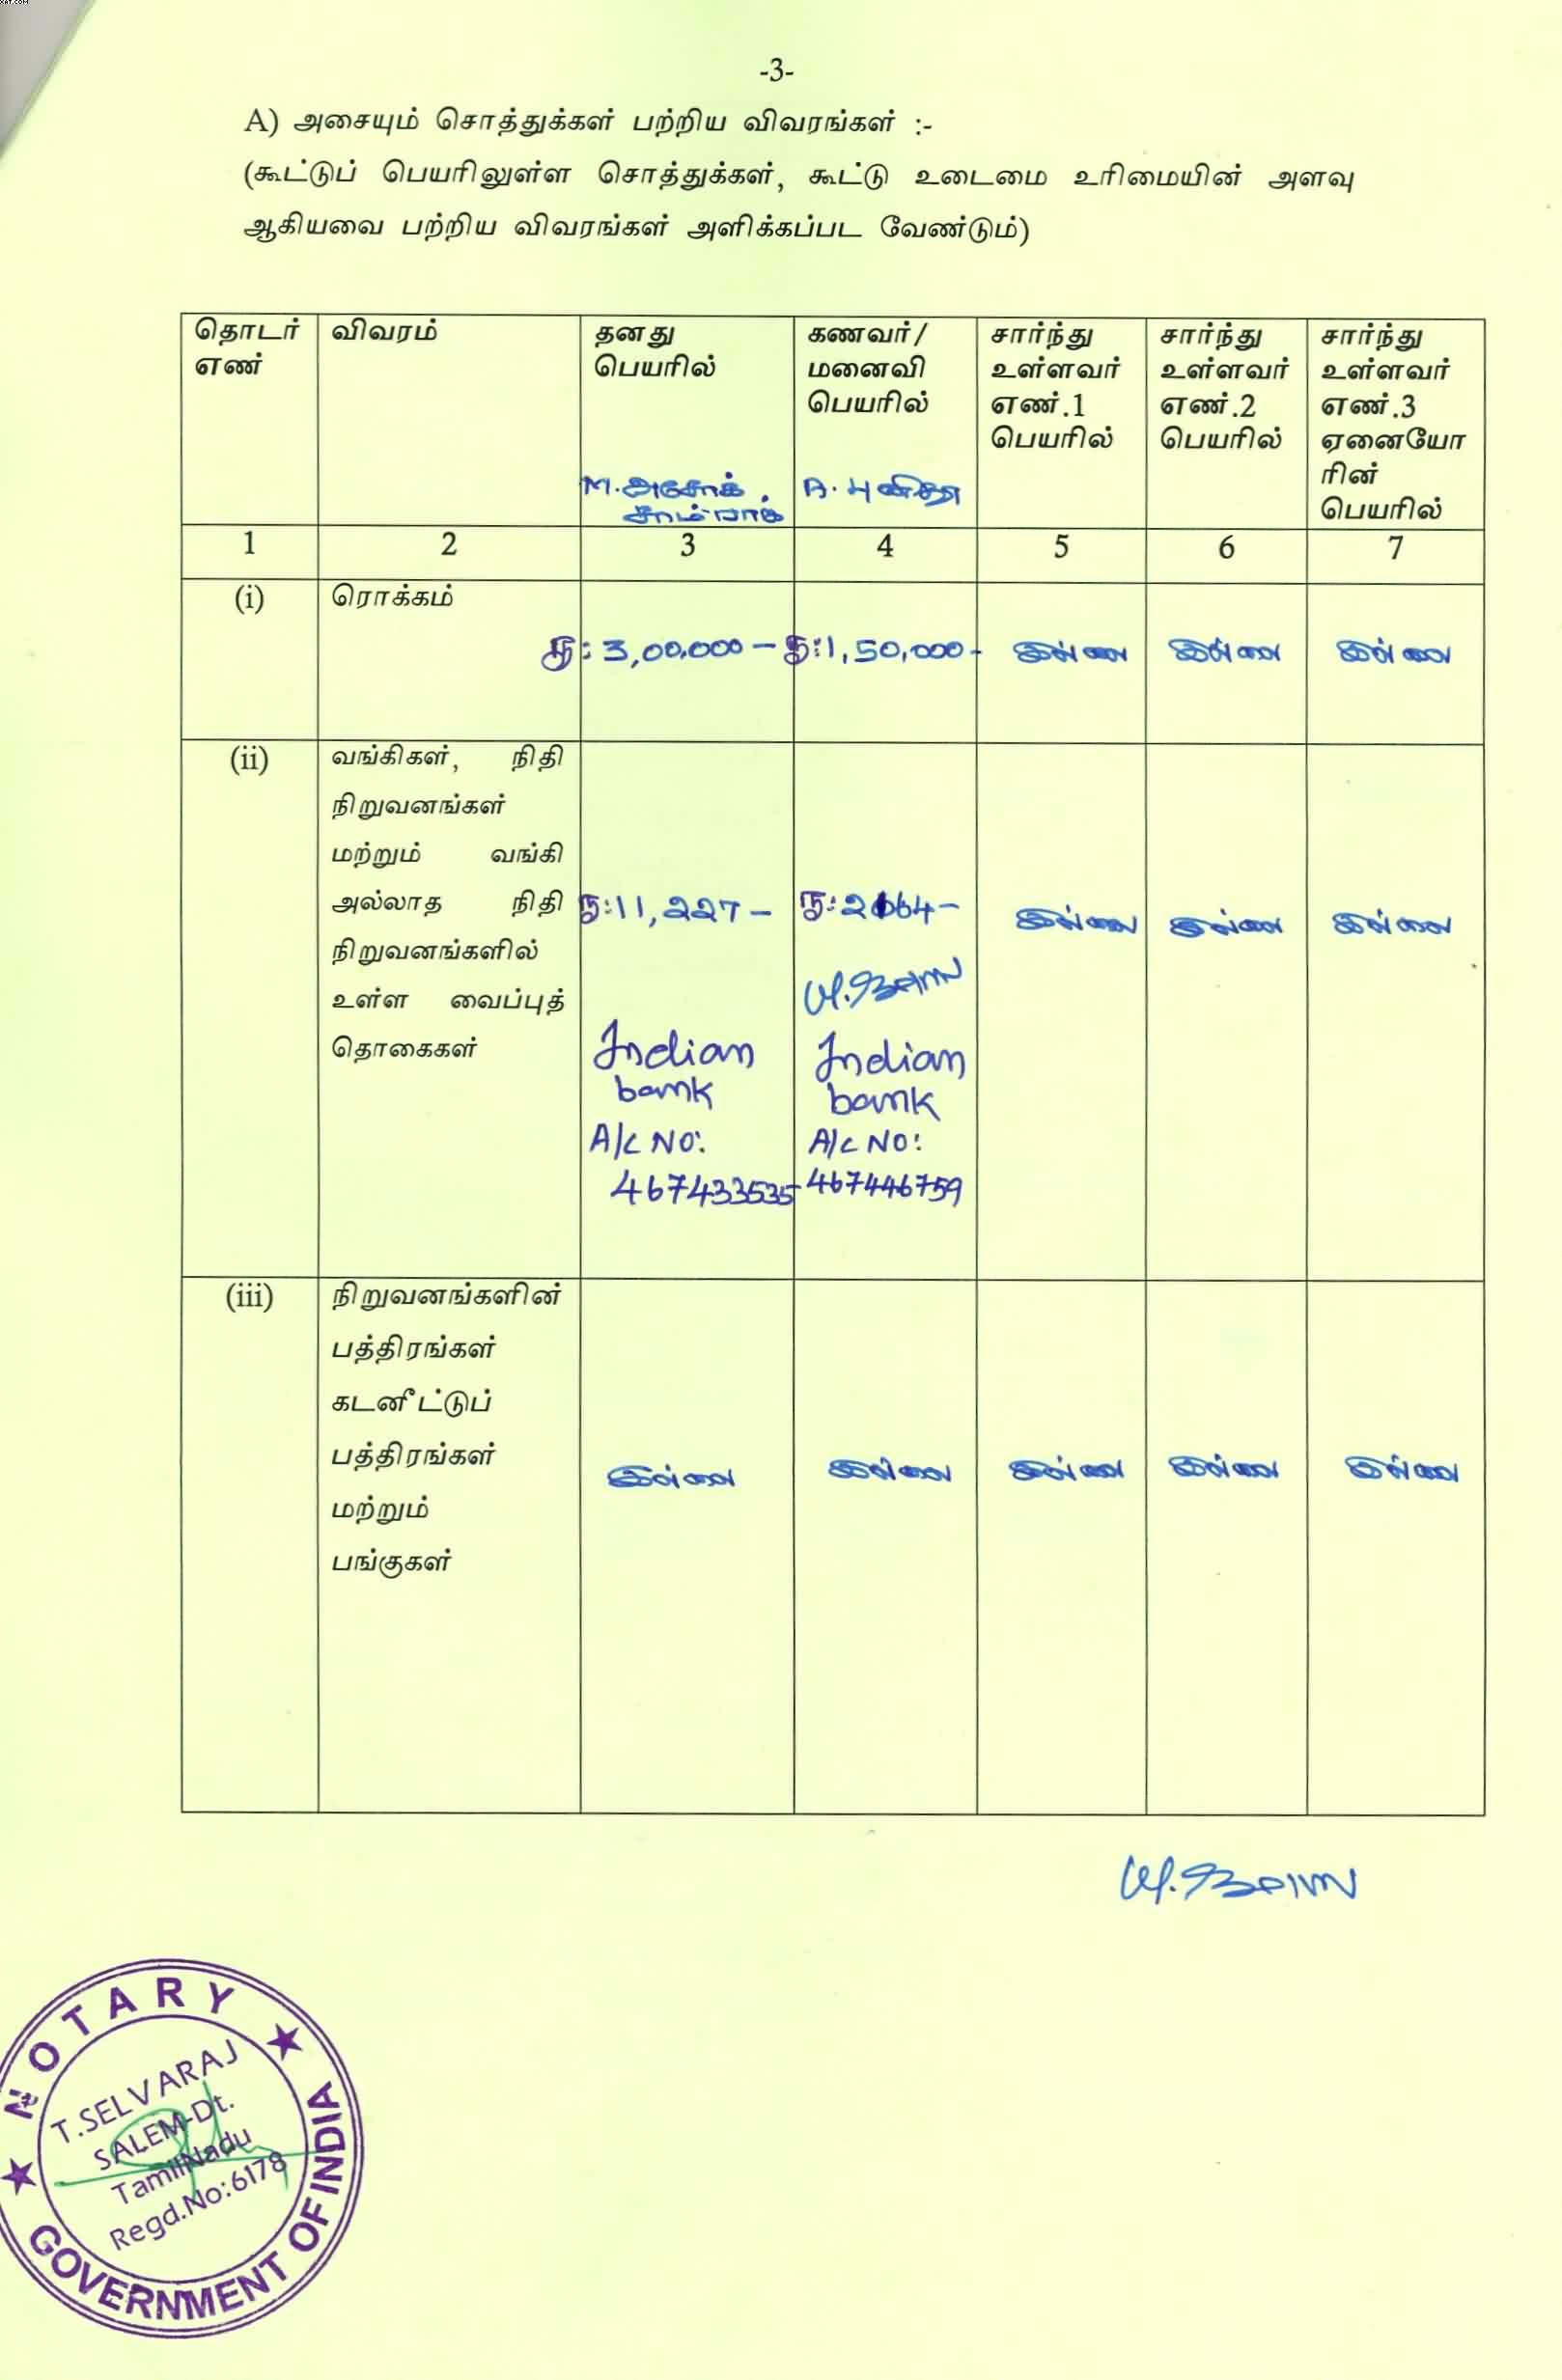 -3-
A) அசையும் சொத்துக்கள் பற்றிய விவரங்கள் :-
(கூட்டுப் பெயரிலுள்ள சொத்துக்கள், கூட்டு உடைமை உரிமையின் அளவு
ஆகியவை பற்றிய விவரங்கள் அளிக்கப்பட வேண்டும்)
தொடர்
எண்
விவரம்
தனது
பெயரில்
M.அசோக்
சாம்ராஜ்
கணவர்/
மனைவி
பெயரில்
A. புனிதா
சார்ந்து
உள்ளவர்
எண்.1
பெயரில்
சார்ந்து
உள்ளவர்
எண்.2
பெயரில்
சார்ந்து
உள்ளவர்
எண்.3
ஏனையோ
ரின்
பெயரில்
1 2 3 4 5 6 7
(i) ரொக்கம்
ரூ: 3,00,000 – ரூ:1,50,000- இல்லை இல்லை இல்லை
(ii)
வங்கிகள், நிதி
நிறுவனங்கள்
மற்றும் வங்கி
அல்லாத நிதி
நிறுவனங்களில்
உள்ள வைப்புத்
தொகைகள்
ரூ:11,227 –
Indian
bank
A/c NO:
467433535
Indian
bank
A/c NO:
467446759
இல்லை இல்லை இல்லை
(iii)
நிறுவனங்களின்
பத்திரங்கள்
கடனீட்டுப்
பத்திரங்கள்
மற்றும்
பங்குகள்
இல்லை இல்லை இல்லை இல்லை இல்லை
NOTARY
T.SELVARAJ
SALEM-Dt.
TamilNadu
Regd.No:6178
GOVERNMENT OF INDIA